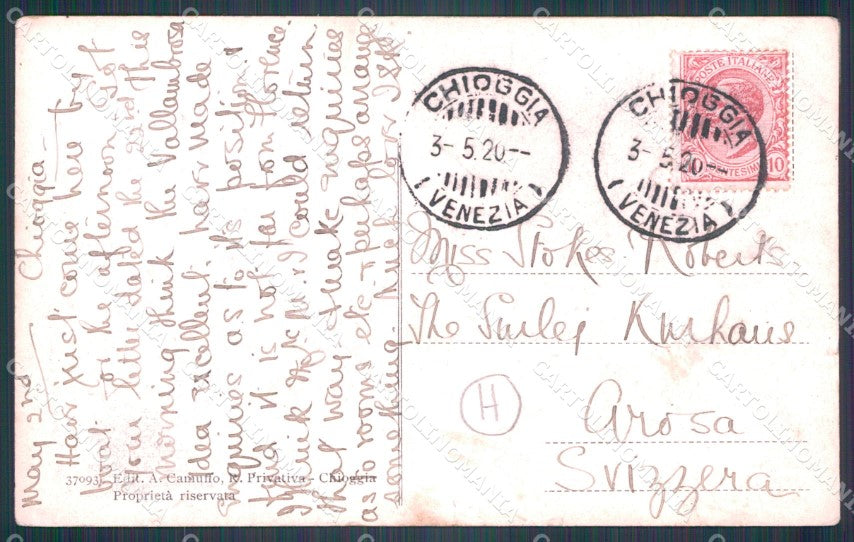 May 2nd Chioggia -
Have just come here by
boat for the afternoon. Got
your letter dated the 22nd this
morning. Think the Vallambrosa
idea excellent. have made
inquiries as to its position &
find it is not far from Florence.
Think & I could return
that way & make inquiries
as to rooms etc. & perhaps arrange
something. Much love
37093 - Edit. A. Camuffo, R. Privativa - Chioggia
Proprietà riservata
CHIOGGIA
3- 5.20--
(VENEZIA)
CHIOGGIA
3- 5.20--
(VENEZIA)
POSTE ITALIANE
CENTESIMI 10
Miss Stokes Roberts
The Kurhaus
Arosa
Svizzera
H
CARTOLINOMANIA